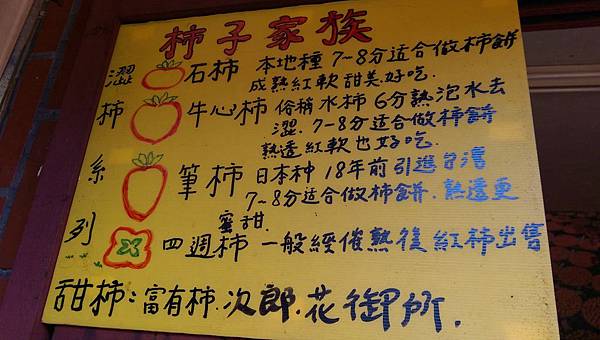 柿子家族
澀柿系列
石柿 本地種 7~8分适合做柿餅
成熟紅軟甜美好吃.
牛心柿 俗稱水柿 6分熟泡水去
澀. 7~8分适合做柿餅
熟透紅軟也好吃.
筆柿 日本种 18年前引進台湾
7~8分适合做柿餅. 熟透更
蜜甜.
四週柿 一般經催熟後紅柿出售
甜柿:富有柿.次郎.花御所.